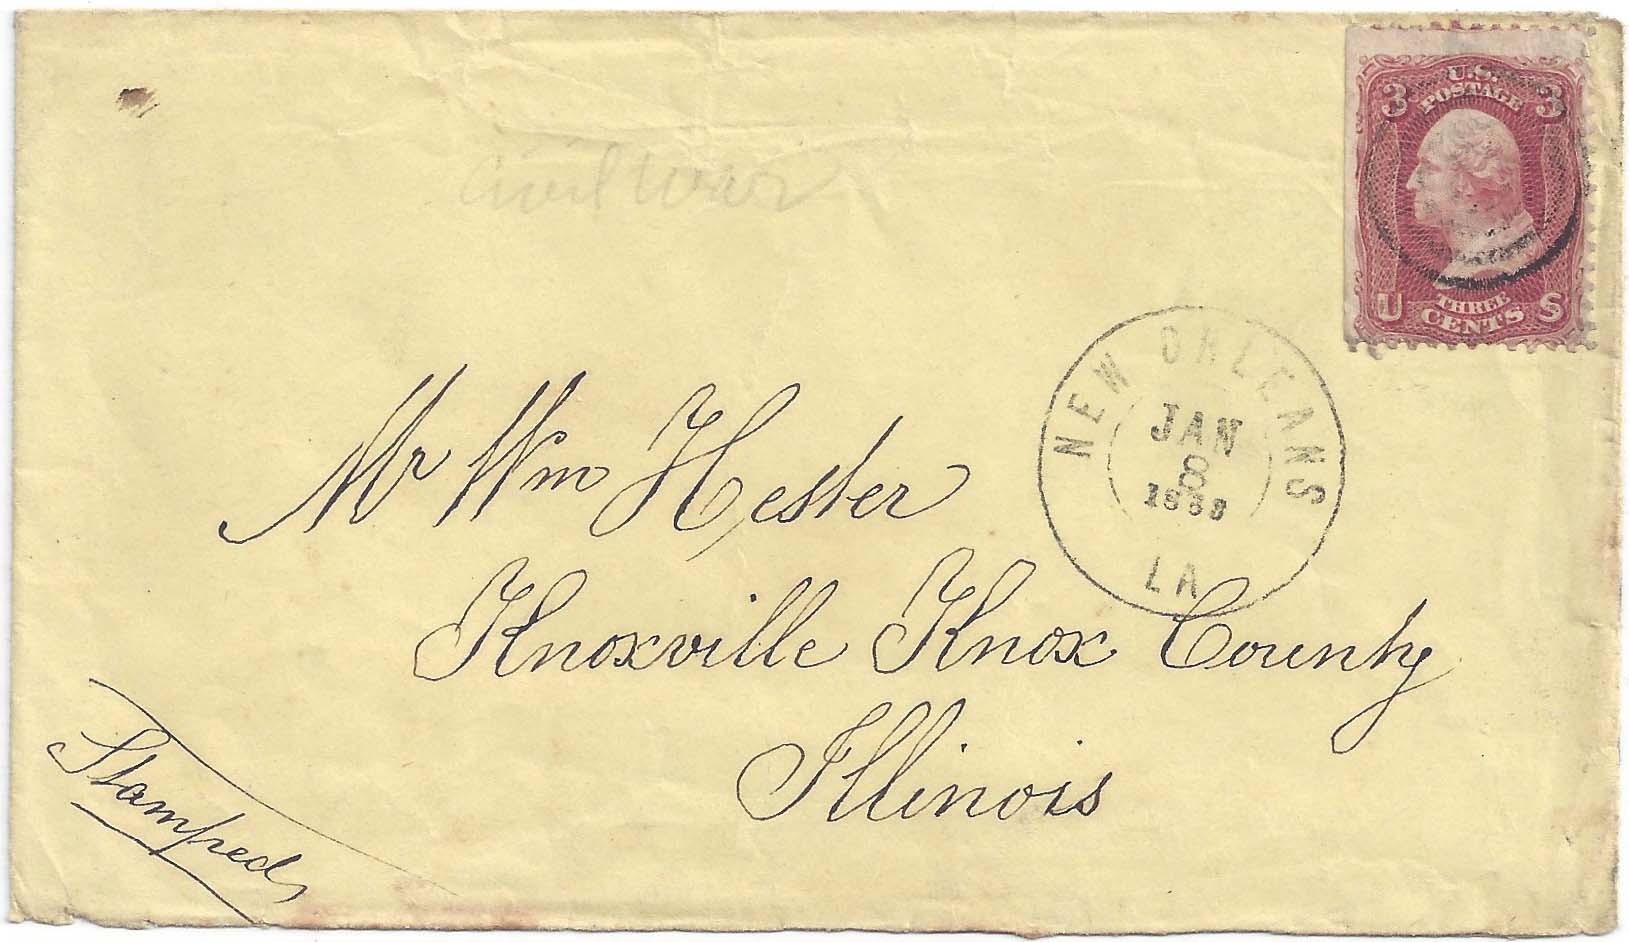 3 U.S. 3
POSTAGE
U THREE S
CENTS
Civil War
NEW ORLEANS
JAN
8
LA
Mr Wm Hester
Knoxville Knox County
Illinois
Stamped